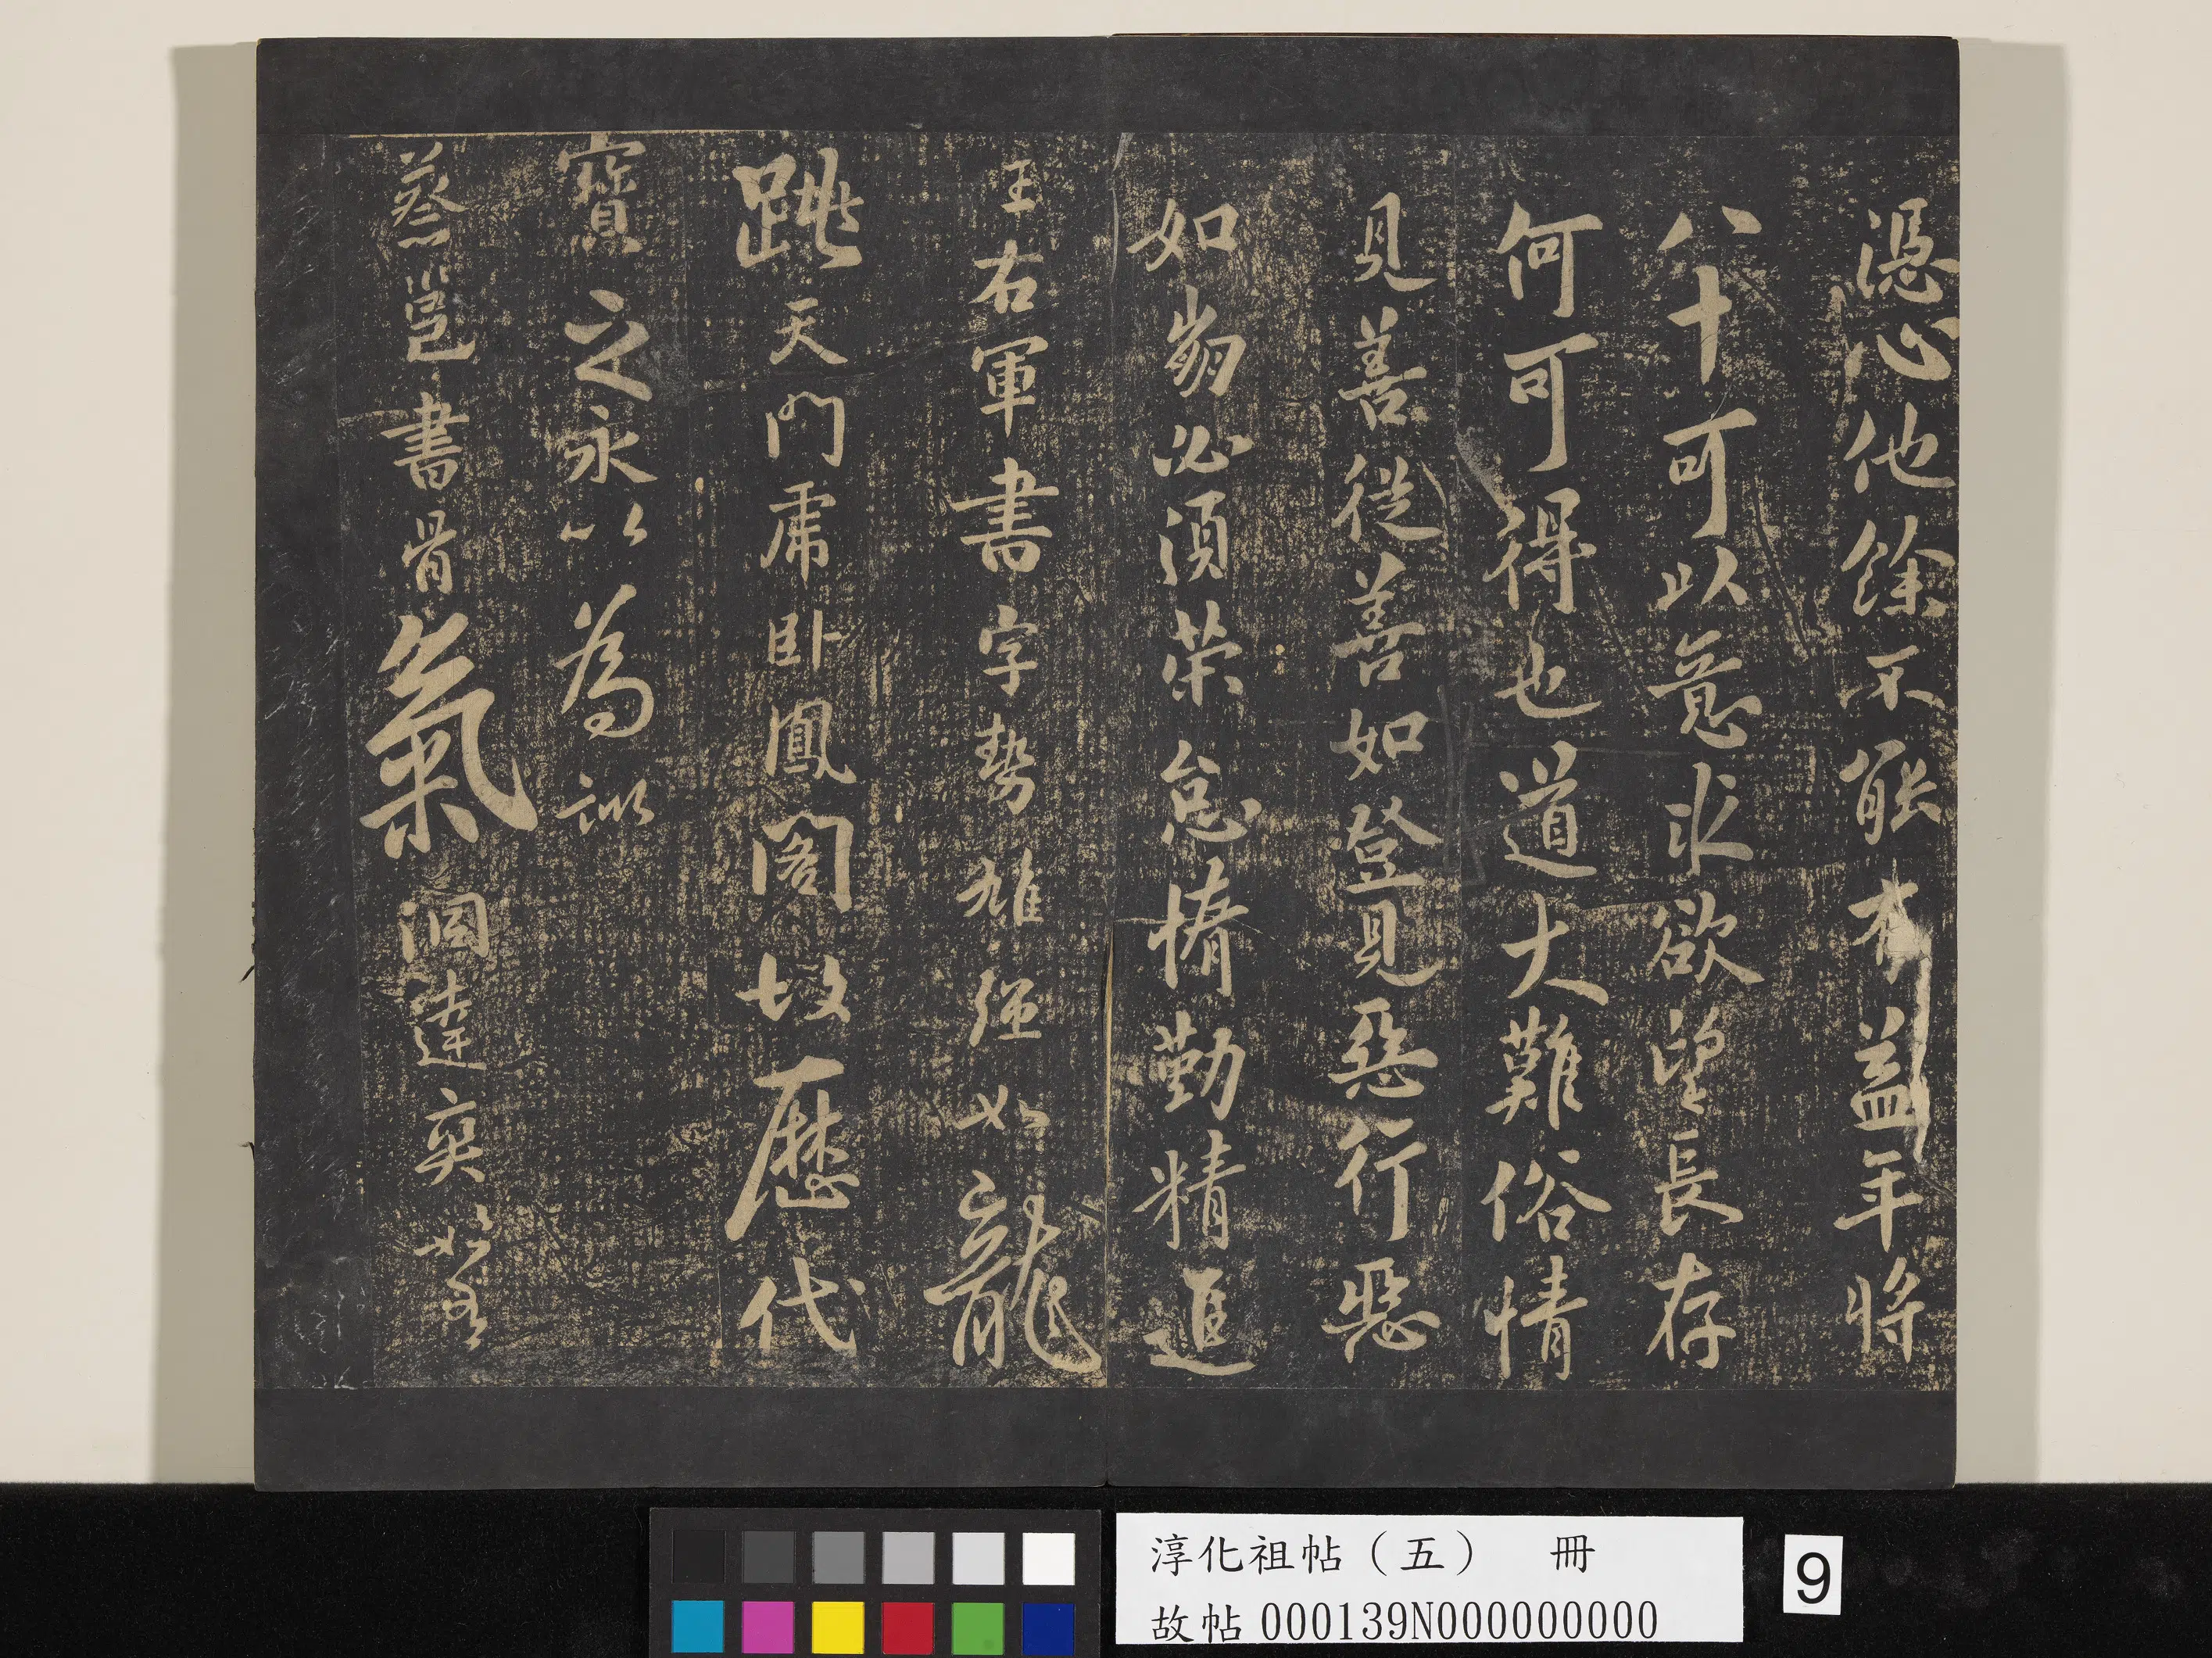 憑心他餘不能有益年將
八十可以意求欲望長存
何可得也道大難俗情
見善從善如登見惡行惡
如崩必須策怠惰勤精進
王右軍書字勢雄强如龍
跳天門虎臥鳳閣故歷代
寶之永以為訓
蔡邕書骨氣洞達爽〻如有
淳化祖帖(五) 冊
故帖 000139N000000000
9